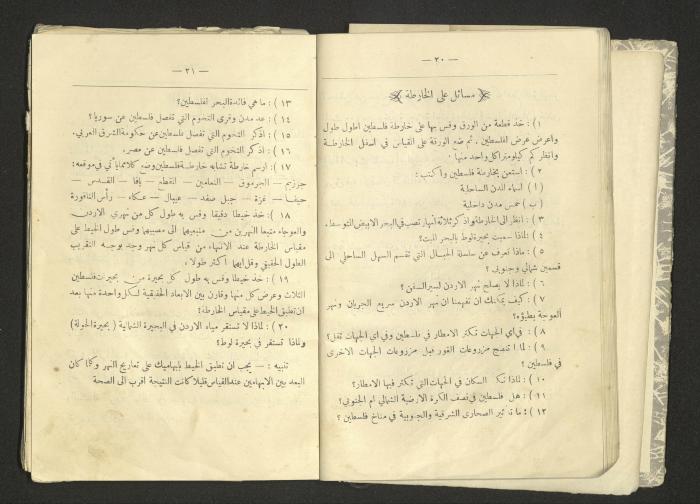 — ٢٠ —
مسائل على الخارطة
١) : خذ قطعة من الورق وقس بها على خارطة فلسطين اطول طول
واعرض عرض لفلسطين، ثم ضع الورقة على القياس في اسفل الخارطة
وانظر كم كيلومترا كل واحد منها .
٢) : استعن بخارطة فلسطين واكتب :
(١) اسماء المدن الساحلية
(ب) خمس مدن داخلية
٣) : انظر الى الخارطة واذكر ثلاثة انهار تصب في البحر الابيض المتوسط .
٤) : لماذا سميت بحيرة لوط بالبحر الميت؟
٥) : ماذا تعرف عن سلسلة الجبال التي تقسم السهل الساحلي الى
قسمين شمالي وجنوبي ؟
٦) : لماذا لا يصلح نهر الاردن لسير السفن ؟
٧) : كيف يمكنك ان تفهمنا ان نهر الاردن سريع الجريان ونهر
العوجة بطيؤه؟
٨) : في اي الجهات تكثر الامطار في فلسطين وفي اي الجهات تقل؟
٩) : لماذا تنضج مزروعات الغور قبل مزروعات الجهات الاخرى
في فلسطين ؟
١٠) : لماذا تكثر السكان في الجهات التي تكثر فيها الامطار؟
١١) : هل فلسطين في نصف الكرة الارضية الشمالي ام الجنوبي؟
١٢) : ما تأثير الصحارى الشرقية والجنوبية في مناخ فلسطين ؟
— ٢١ —
١٣) : ما هي فائدة البحر لفلسطين؟
١٤) : عد مدن وقرى التخوم التي تفصل فلسطين عن سوريا؟
١٥) : اذكر التخوم التي تفصل فلسطين عن حكومة الشرق العربي.
١٦) : اذكر التخوم التي تفصل فلسطين عن مصر.
١٧) : ارسم خارطة تشابه خارطة فلسطين وضع كلا مما يأتي في موقعه:
جرزيم — الجرموق — النعامين — المقطع — يافا — القدس —
حيفا — غزة — جبل صفد — عيبال — عكاء — رأس الناقورة
١٨) : خذ خيطا دقيقا وقس به طول كل من نهري الاردن
والعوجاء متبعا النهرين من منبعيهما الى مصبيهما وقس طول الخيط على
مقياس الخارطة عند الانتهاء من قياس كل نهر وجد بوجه التقريب
الطول الحقيقي وقل ايهما اكثر طولا.
١٩) : خذ خيطا وقس به طول كل بحيرة من بحيرات فلسطين
الثلاث وعرض كل منها وقارن بين الابعاد الحقيقية لكل واحدة منها بعد
ان تطبق الخيط على مقياس الخارطة؟
٢٠) : لماذا لا تستقر مياه الاردن في البحيرة الشمالية ( بحيرة الحولة )
ولماذا تستقر في بحيرة لوط؟
تنبيه : — يجب ان تطبق الخيط بابهاميك على تعاريج النهر وكلما كان
البعد بين الابهامين عند القياس قليلا كانت النتيجة اقرب الى الصحة